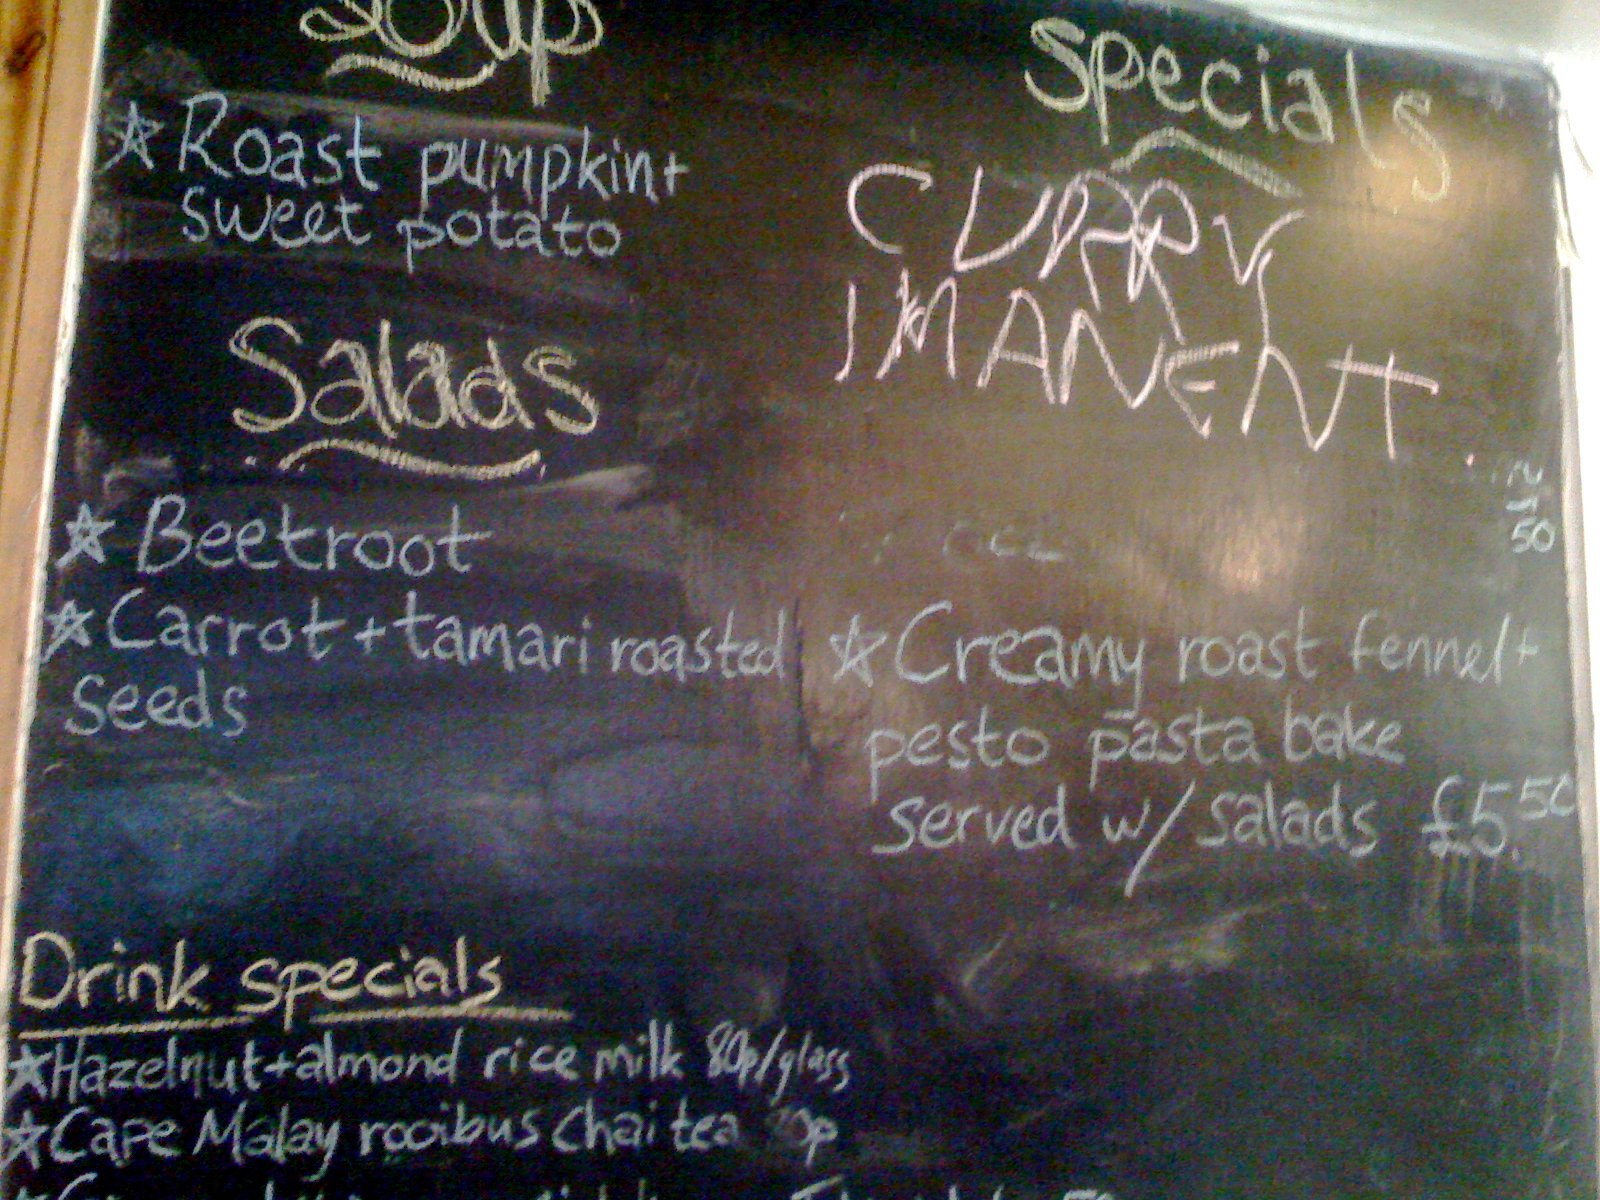 Soup
Roast pumpkin+
sweet potato
Salads
Beetroot
Carrot + tamari roasted
seeds
Specials
CURRY
IMANENT
50
Creamy roast fennel +
pesto pasta bake
served w/ salads £5.50
Drink specials
Hazelnut+almond rice milk 80p/glass
Cape Malay rooibus chai tea